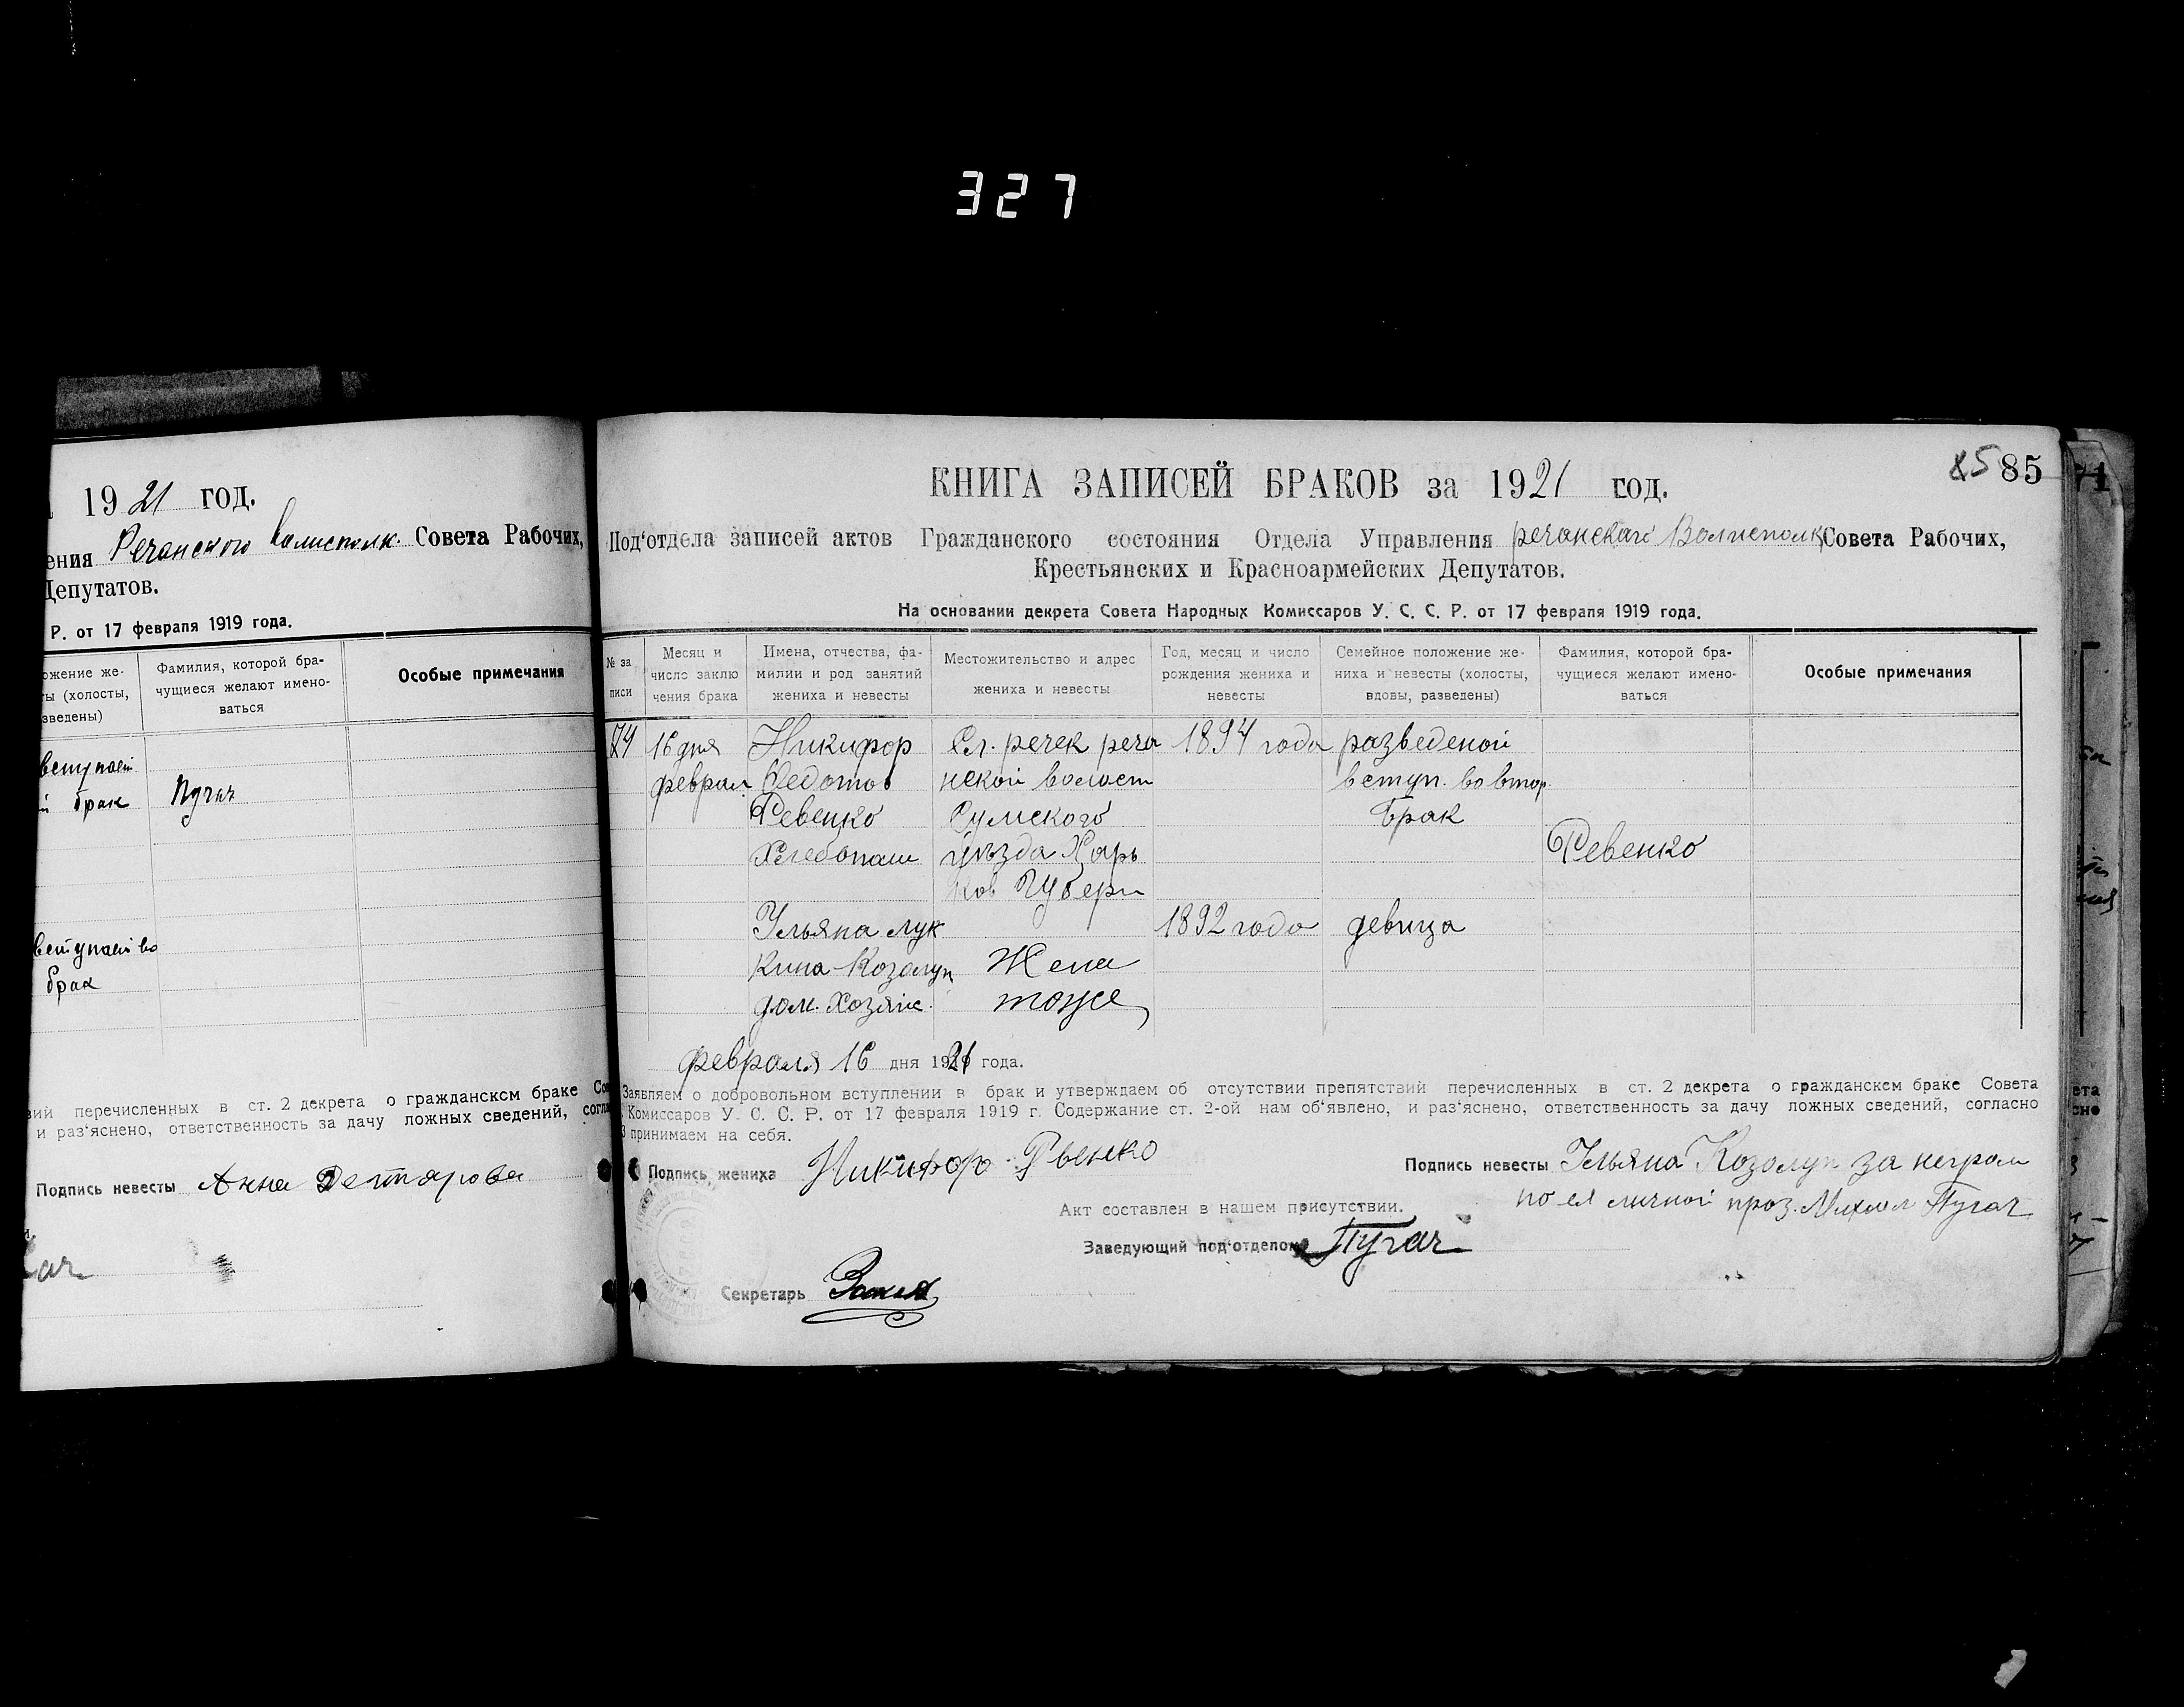 327
19 21 год.
ения Речанского Волисполк. Совета Рабочих,
Депутатов.
Р. от 17 февраля 1919 года.
ожение же-
ты (холосты,
зведены)
Фамилия, которой бра-
чущиеся желают имено-
ваться
Особые примечания
вступает
й брак
Пугач
вступает во
брак
вий перечисленных в ст. 2 декрета о гражданском браке Со
и раз'яснено, ответственность за дачу ложных сведений, согла
Подпись невесты Анна Дегтярова
85 85
КНИГА ЗАПИСЕЙ БРАКОВ за 1921 год.
Под'отдела записей актов Гражданского состояния Отдела Управления речанскаго Волисполк Совета Рабочих,
Крестьянских и Красноармейских Депутатов.
На основании декрета Совета Народных Комиссаров У. С. С. Р. от 17 февраля 1919 года.
№ за
писи
Месяц и
число заклю
чения брака
Имена, отчества, фа-
милии и род занятий
жениха и невесты
Местожительство и адрес
жениха и невесты
Год, месяц и число
рождения жениха и
невесты
Семейное положение же-
ниха и невесты (холосты,
вдовы, разведены)
Фамилия, которой бра-
чущиеся желают имено-
ваться
Особые примечания
74
16 дня
феврал.
Никифор
Федотов
Ревенко
Хлебопаш
Сл. речек реча
нской волост
Сумского
уъзда Харь
ков Губерн
1894 года
разведеной
вступ. во втор.
брак
Ревенко
Ульяна Лук
кина Козолуп
дом. хозяйс.
Жена
тоже
1892 года
девица
Февраля 16 дня 1921 года.
Заявляем о добровольном вступлении в брак и утверждаем об отсутствии препятствий перечисленных в ст. 2 декрета о гражданском браке Совета
Комиссаров У. С. С. Р. от 17 февраля 1919 г. Содержание ст. 2-ой нам об'явлено, и раз'яснено, ответственность за дачу ложных сведений, согласно
3 принимаем на себя.
Подпись жениха Никифор Рвенко
Подпись невесты Ульяна Козолуп за неграм
по ея личной проз. Михаил Пугач
Акт составлен в нашем присутствии.
Заведующий под'отделом Пугач
Секретарь
71